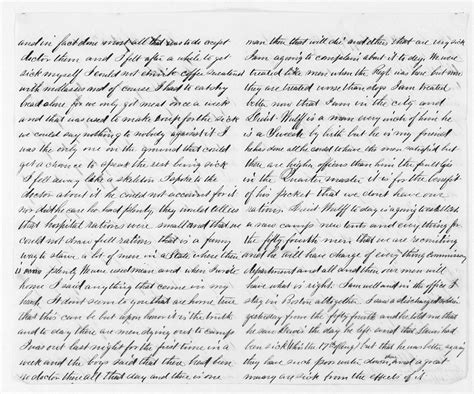 and in fact done most all that was to do except
doctor them and I fell after a while to get
sick myself I could not drink coffee sweetened
with mollasses and of course I had to eat dry
bread alone for we only got meat once a week
and that was used to make soup for the sick
we could say nothing to nobody against it I
was the only one on the ground that could
get a chance to speak the rest being sick
I fell away like a skeleton I spoke to the
doctor about it he could not account for it
nor did he care he had plenty they would tell us
that hospital rations were small and that we
could not draw full rations that is a funny
way to starve a lot of men in a State where there
is plenty We are used mean and when I wrote
home I said anything that came in my
head it dont seem to you that are home true
that this can be but upon honor it is the truth
and to day there are men dying out to camp
I was out last night for the first time in a
week and the boys said that there had been
no doctor there all that day and there is one
man there that will die and others that are very sick
I am agoing to complain about it to day We were
treated like men when the Regt was here but now
they are treated worse than dogs I am treated
better now that I am in the city and
Lieut Wulff is a man every inch of him he
is a Sweede by birth but he is my friend
he has done all he could to have the men satisfied but
there are higher officers than him the fault is
in the Quarter master it is for the benefit
of his pocket that we dont have our
rations Lieut Wulff to day is agoing to establish
a new camp new tents and everything for
the fifty fourth men that we are recruiting
and he will have charge of every thing commissary
Department and all and then our men will
have what is right I am well and in the office I
stay in Boston altogether I saw a discharged soldier
yesterday from the fifty fourth and he told me that
he saw the day he left and that had
been sick but that he was better again
they have such poor water down there and a great
many are sick from the effects of it